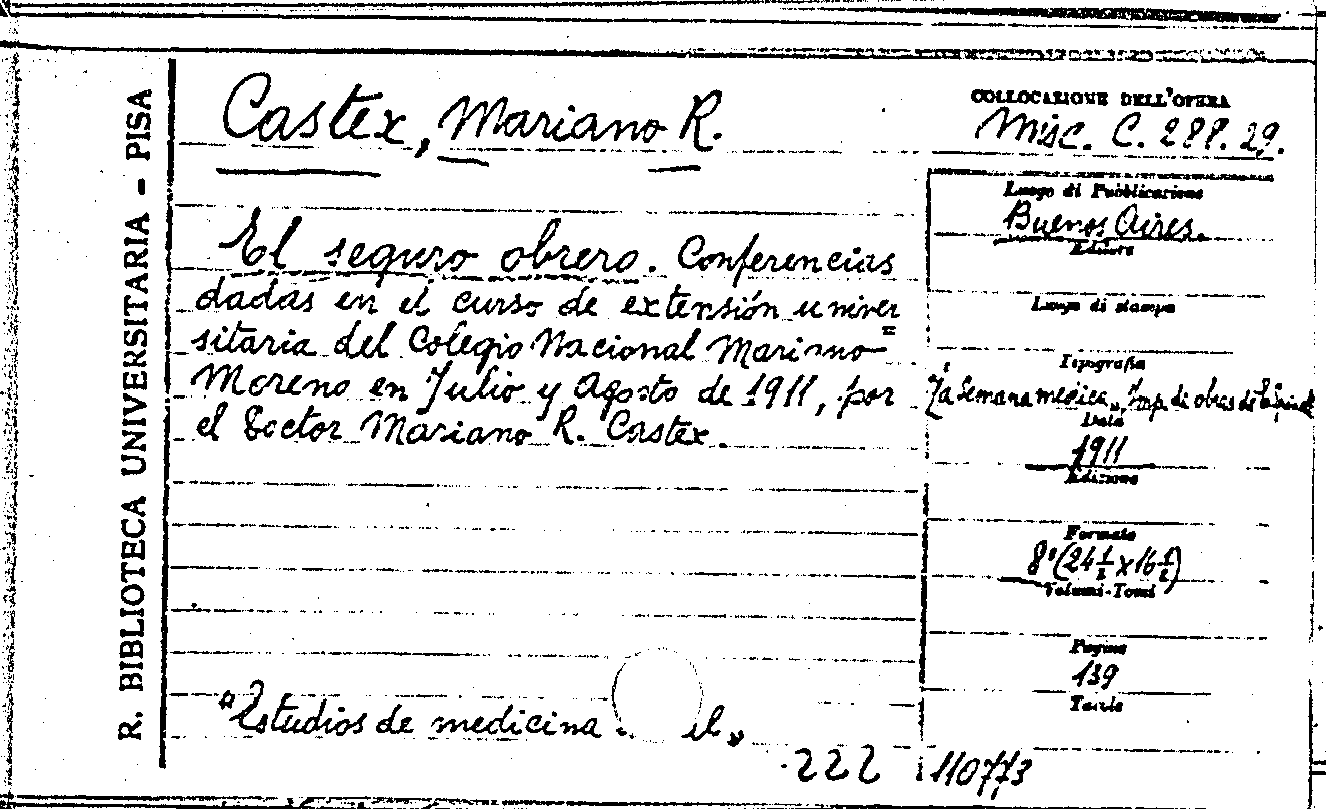 R. BIBLIOTECA UNIVERSITARIA - PISA
Castex, Mariano R.
El seguro obrero. Conferencias
dadas en el curso de extensión univer
sitaria del Colegio Nacional Mariano
Moreno en Julio y Agosto de 1911, por
el Doctor Mariano R. Castex.
"Estudios de medicina
222
COLLOCAZIONE DELL'OPERA
Misc. C. 288. 29.
Luogo di Pubblicazione
Buenos Aires.
Editore
Luogo di stampa
Tipografia
"La Semana medica" Imp. de obras de
Data
1911
Edizione
Formato
8° (24 1/2 x 16 1/2)
Volumi-Tomi
Pagine
139
Tavole
110773